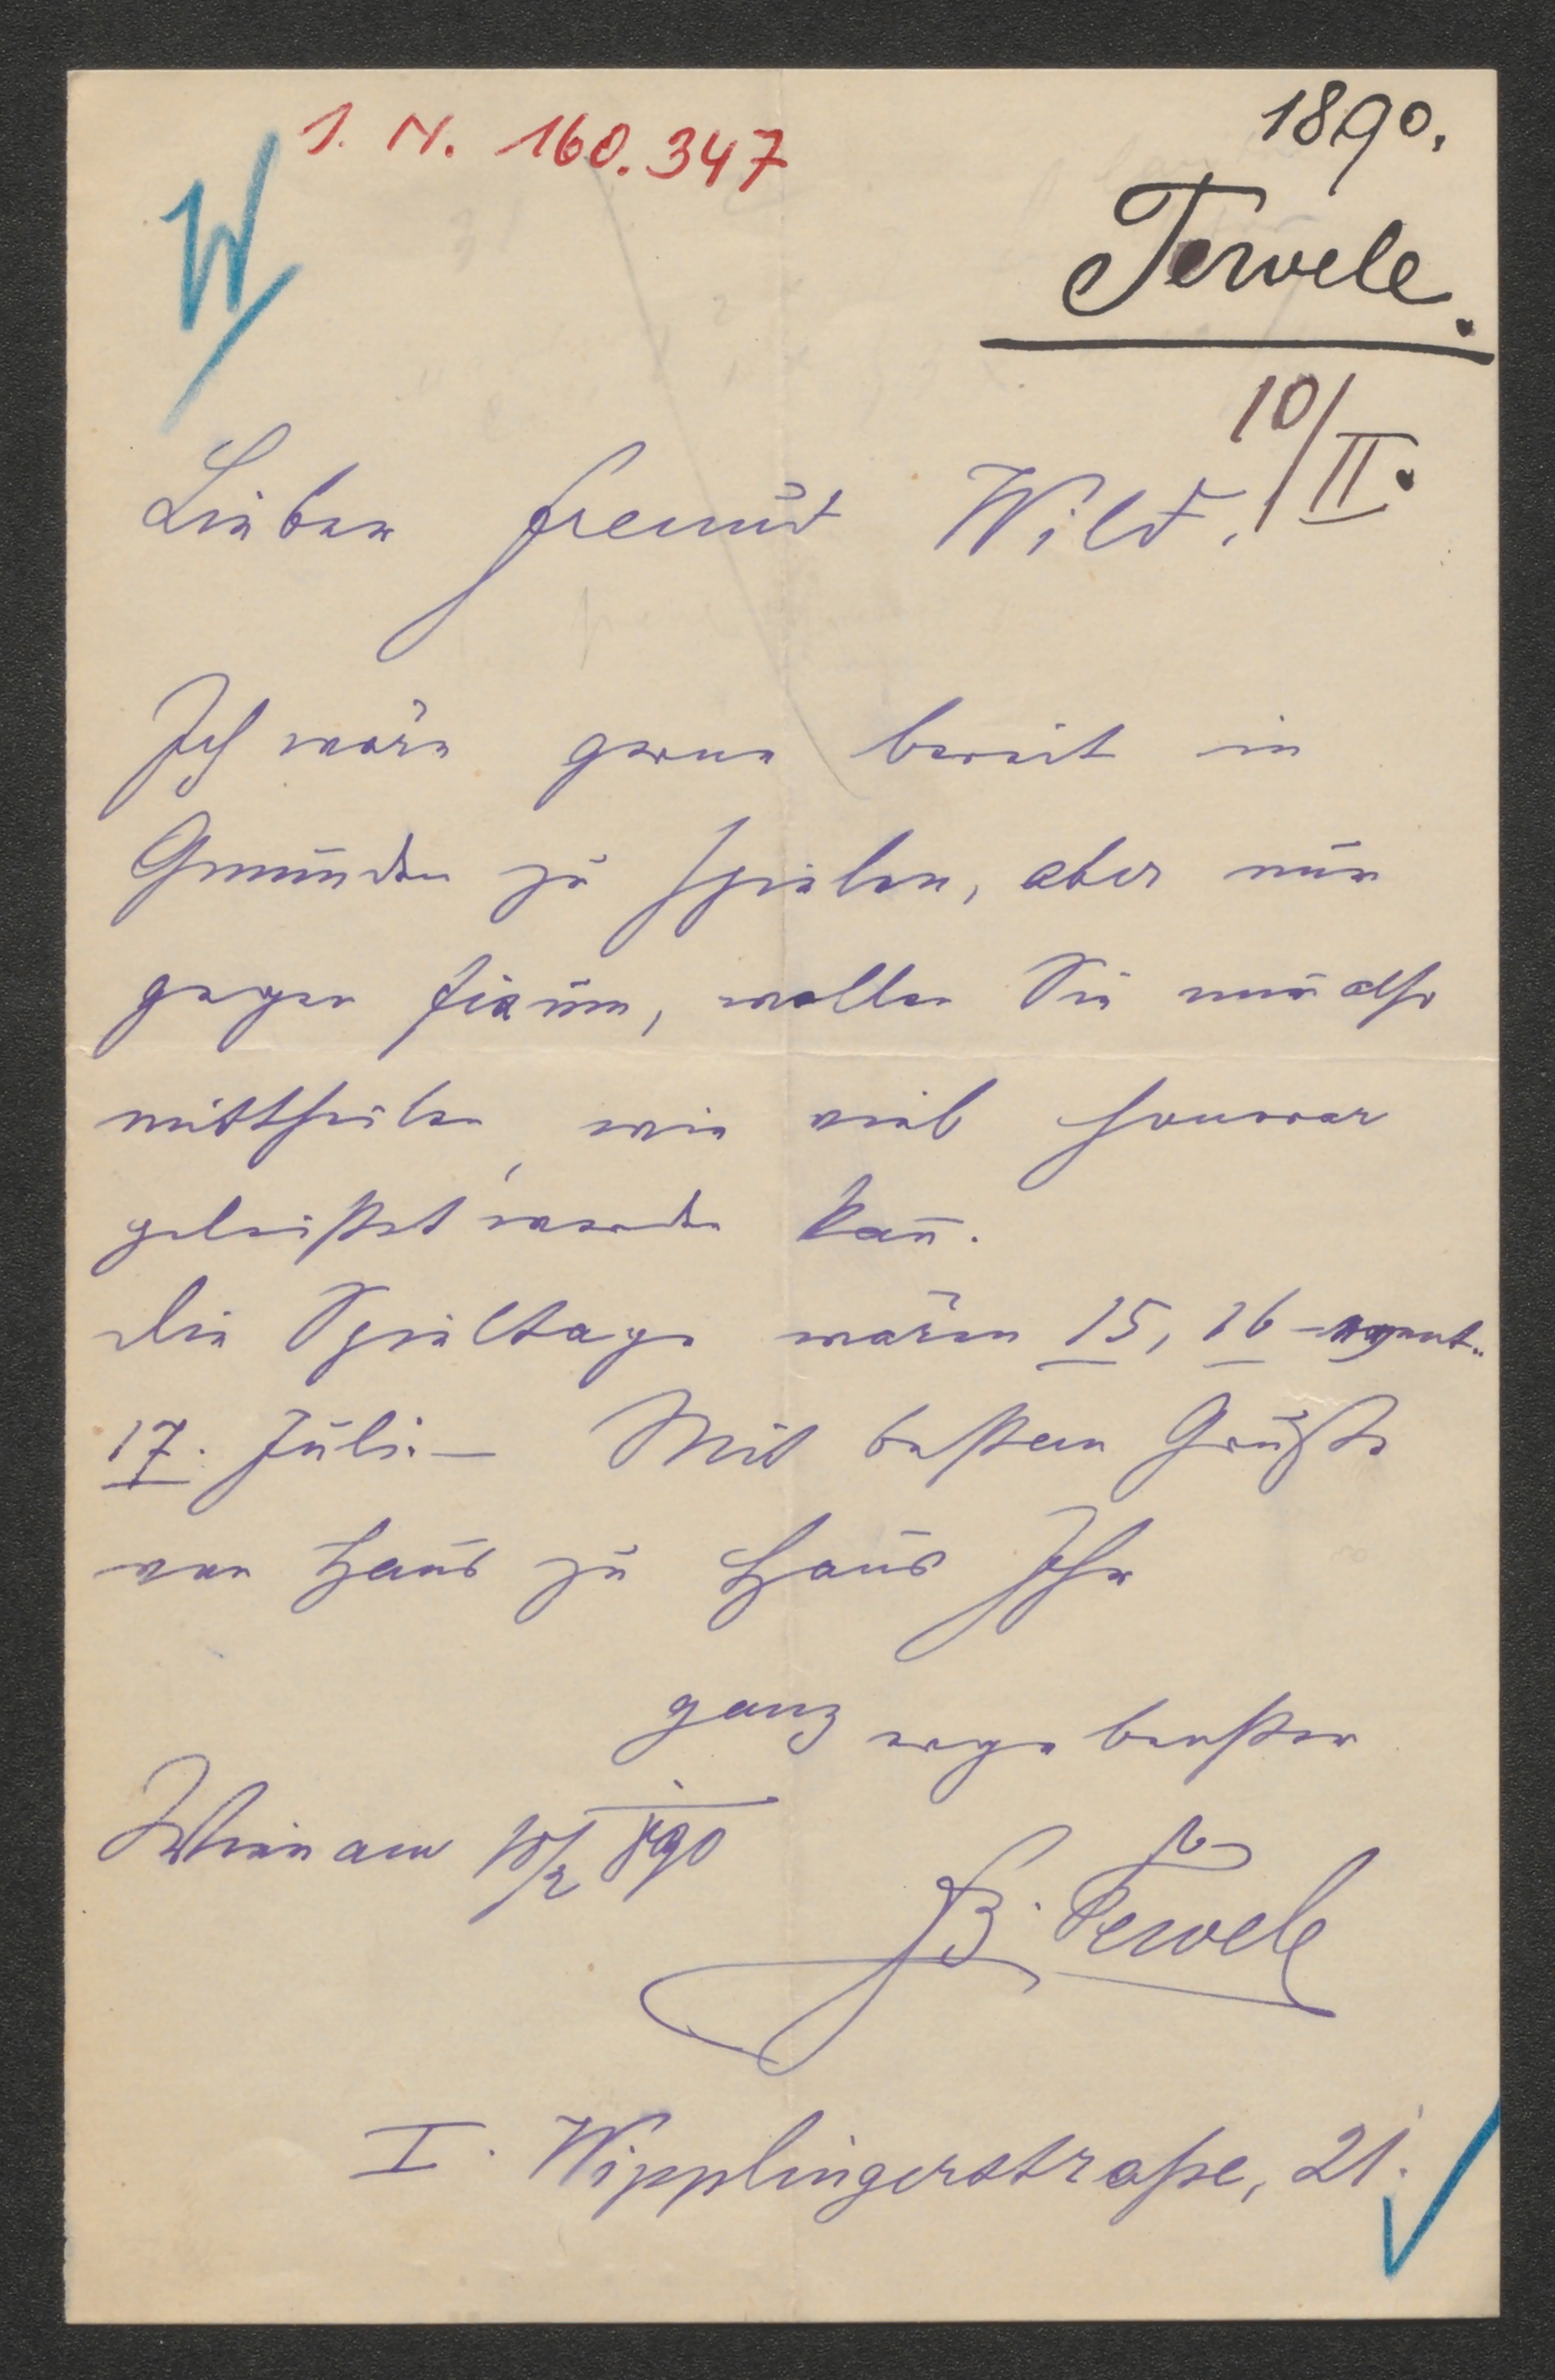 I. N. 160.347
1890.
W
Tewele.
10/II.
Lieber Freund Wild,
Ich wäre gerne bereit in
Gmunden zu spielen, aber nur
gegen fixum, wollen Sie mir also
mittheilen, wie viel honorar
geleistet werden kan̄.
Die Spieltage wären 15, 16 - event.
17. Juli. — Mit bestem Gruße
von Haus zu Haus Ihr
ganz ergebenster
Wien am 10/2 890
F. Tewele
I. Wipplingerstraße, 21.